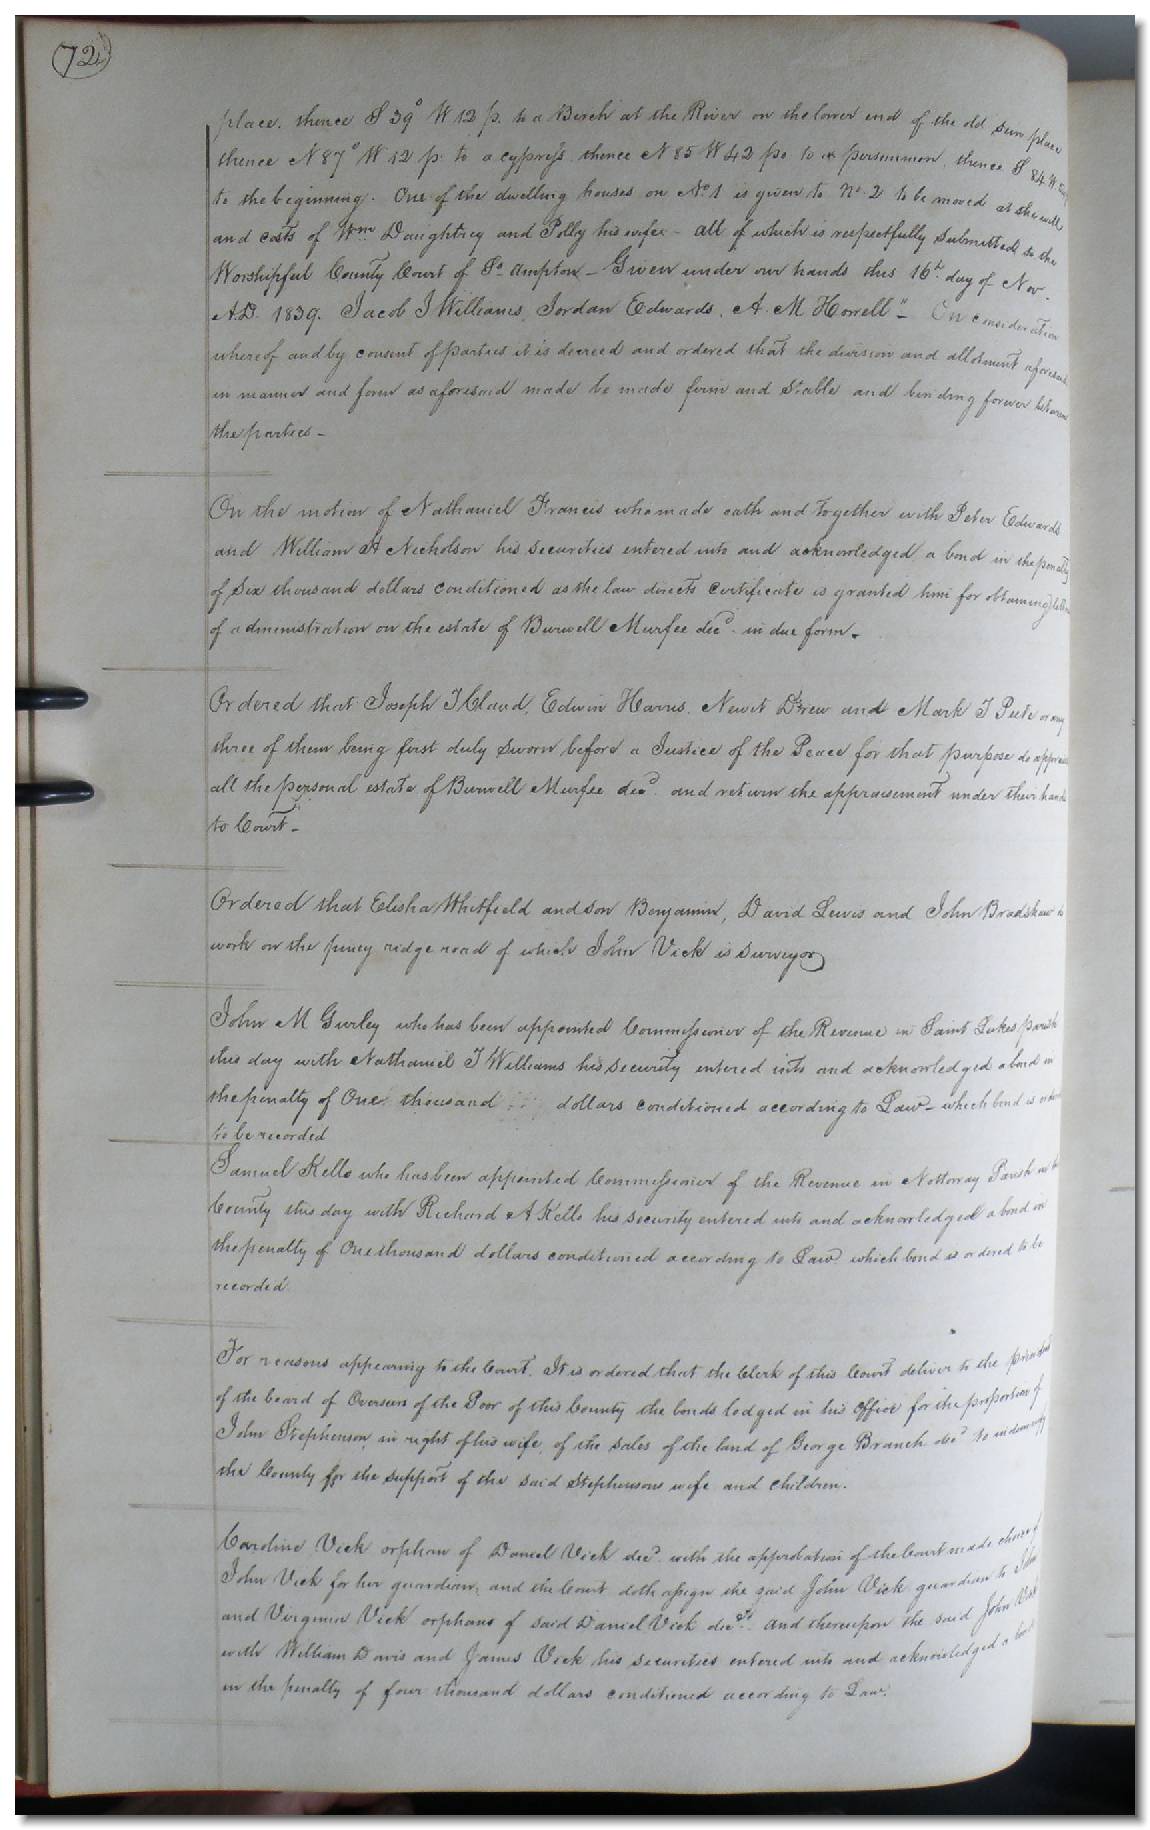 72
place. thence S 39° W 12 p. to a Birch at the River on the lower end of the old place
thence N 87° W 12 p. to a cypress, thence N 85 W 42 po to a persimmon, thence S 84 W
to the beginning. One of the dwelling houses on No 1 is given to No. 2 to be moved at the will
and costs of Wm Daughtrey and Polly his wife - all of which is respectfully submitted to the
Worshipful County Court of So ampton - Given under our hands this 16th day of Nov.
A.D. 1839. Jacob J Williams, Jordan Edwards, A. M Howell" - On consideration
whereof and by consent of parties it is decreed and ordered that the division and allotment aforesaid
in manner and form as aforesaid made be made firm and stable and binding forever between
the parties -
On the motion of Nathaniel Francis who made oath and together with Peter Edwards
and William H Nicholson his securities entered into and acknowledged a bond in the penalty
of six thousand dollars conditioned as the law directs certificate is granted him for obtaining letters
of administration on the estate of Burwell Murfee decd. in due form.
Ordered that Joseph T Claud, Edwin Harris, Newit Drew and Mark T Peete or any
three of them being first duly sworn before a Justice of the Peace for that purpose do appraise
all the personal estate of Burwell Murfee decd. and return the appraisement under their hands
to Court -
Ordered that Elisha Whitfield and son Benjamin, David Lewis and John Bradshaw to
work on the piney ridge road of which John Vick is surveyor
John M Gurley who has been appointed Commissioner of the Revenue in Saint Lukes parish
this day with Nathaniel T Williams his security entered into and acknowledged a bond in
the penalty of One thousand dollars conditioned according to Law - which bond is ordered
to be recorded
Samuel Kello who has been appointed Commissioner of the Revenue in Nottoway Parish in the
County this day with Richard A Kello his security entered into and acknowledged a bond in
the penalty of One thousand dollars conditioned according to Law which bond is ordered to be
recorded
For reasons appearing to the Court. It is ordered that the Clerk of this Court deliver to the president
of the board of Overseers of the Poor of this County the bonds lodged in his office for the proportion of
John Stephenson, in right of his wife, of the sales of the land of George Branch decd to indemnify
the County for the support of the said Stephensons wife and children.
Caroline Vick orphan of Daniel Vick decd. with the approbation of the Court made choice of
John Vick for her guardian, and the Court doth assign the said John Vick guardian to John
and Virginia Vick orphans of said Daniel Vick decd. and thereupon the said John Vick
with William Davis and James Vick his securities entered into and acknowledged a bond
in the penalty of four thousand dollars conditioned according to Law.